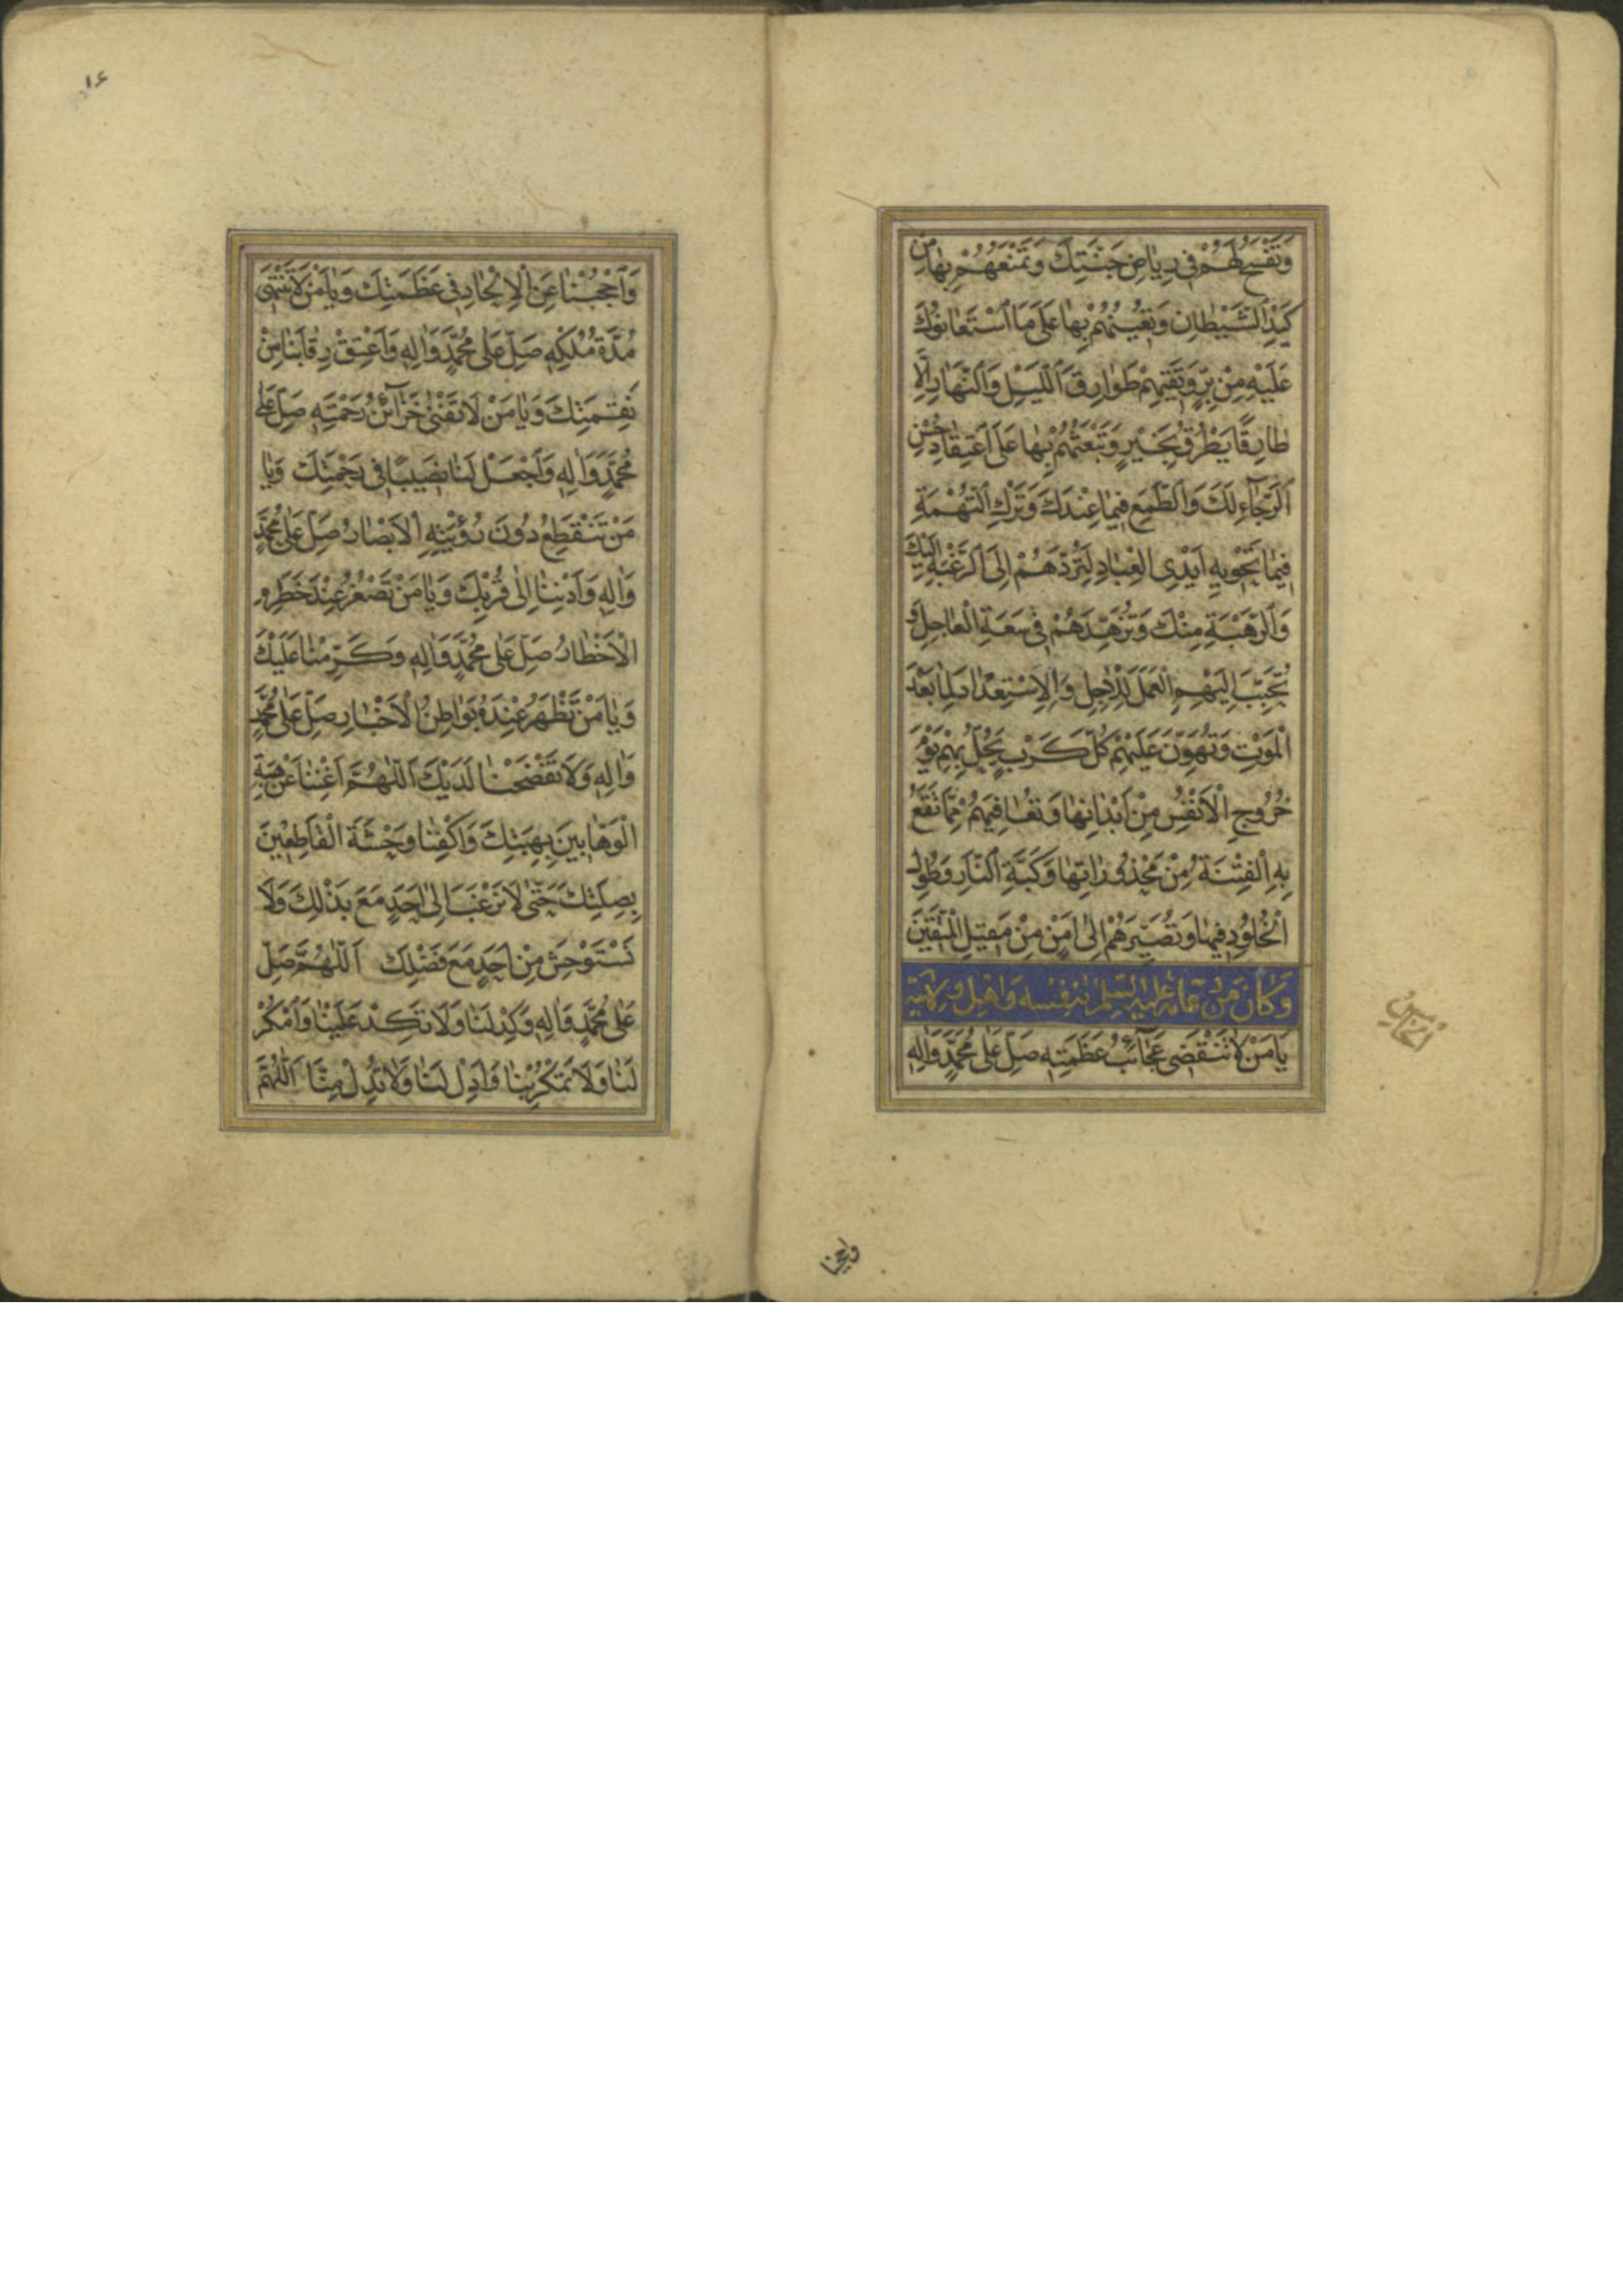 وَتَفْسَحُ لَهُمْ فِي رِيَاضِ جَنَّتِكَ وَتَمْنَعُهُمْ بِهَا مِنْ
كَيْدِ الشَّيْطَانِ وَتُعِينُهُمْ بِهَا عَلَى مَا اسْتَعَانُوكَ
عَلَيْهِ مِنْ بِرٍّ وَتَقِيهِمْ طَوَارِقَ اللَّيْلِ وَالنَّهَارِ إِلَّا
طَارِقًا يَطْرُقُ بِخَيْرٍ وَتَبْعَثُهُمْ بِهَا عَلَى اعْتِقَادِ حُسْنِ
الرَّجَاءِ لَكَ وَالطَّمَعِ فِيمَا عِنْدَكَ وَتَرْكِ التُّهْمَةِ
فِيمَا تَحْوِيهِ أَيْدِي الْعِبَادِ لِتَرُدَّهُمْ إِلَى الرَّغْبَةِ إِلَيْكَ
وَالرَّهْبَةِ مِنْكَ وَتُزَهِّدَهُمْ فِي سَعَةِ الْعَاجِلِ وَ
تُحَبِّبَ إِلَيْهِمُ الْعَمَلَ لِلْآجِلِ وَالِاسْتِعْدَادَ لِمَا بَعْدَ
الْمَوْتِ وَتُهَوِّنَ عَلَيْهِمْ كُلَّ كَرْبٍ يَحُلُّ بِهِمْ يَوْمَ
خُرُوجِ الْأَنْفُسِ مِنْ أَبْدَانِهَا وَتُعَافِيَهُمْ مِمَّا تَقَعُ
بِهِ الْفِتْنَةُ مِنْ مَحْذُورَاتِهَا وَكَبَّةِ النَّارِ وَطُولِ
الْخُلُودِ فِيهَا وَتُصَيِّرَهُمْ إِلَى أَمْنٍ مِنْ مَقِيلِ الْمُتَّقِينَ
وَكَانَ مِنْ دُعَائِهِ عَلَيْهِ السَّلَمُ لِنَفْسِهِ وَأَهْلِ وِلَايَتِهِ
يَا مَنْ لَا تَنْقَضِي عَجَائِبُ عَظَمَتِهِ صَلِّ عَلَى مُحَمَّدٍ وَآلِهِ
الخامس
واحجبنا
١٤
وَاحْجُبْنَا عَنِ الْإِلْحَادِ فِي عَظَمَتِكَ وَيَا مَنْ لَا تَنْتَهِي
مُدَّةُ مُلْكِهِ صَلِّ عَلَى مُحَمَّدٍ وَآلِهِ وَأَعْتِقْ رِقَابَنَا مِنْ
نَقِمَتِكَ وَيَا مَنْ لَا تَفْنَى خَزَائِنُ رَحْمَتِهِ صَلِّ عَلَى
مُحَمَّدٍ وَآلِهِ وَاجْعَلْ لَنَا نَصِيبًا فِي رَحْمَتِكَ وَيَا
مَنْ تَنْقَطِعُ دُونَ رُؤْيَتِهِ الْأَبْصَارُ صَلِّ عَلَى مُحَمَّدٍ
وَآلِهِ وَأَدْنِنَا إِلَى قُرْبِكَ وَيَا مَنْ تَصْغُرُ عِنْدَ خَطَرِهِ
الْأَخْطَارُ صَلِّ عَلَى مُحَمَّدٍ وَآلِهِ وَكَرِّمْنَا عَلَيْكَ
وَيَا مَنْ تَظْهَرُ عِنْدَهُ بَوَاطِنُ الْأَخْبَارِ صَلِّ عَلَى مُحَمَّدٍ
وَآلِهِ وَلَا تَفْضَحْنَا لَدَيْكَ اللَّهُمَّ أَغْنِنَا عَنْ هِبَةِ
الْوَهَّابِينَ بِهِبَتِكَ وَاكْفِنَا وَحْشَةَ الْقَاطِعِينَ
بِصِلَتِكَ حَتَّى لَا نَرْغَبَ إِلَى أَحَدٍ مَعَ بَذْلِكَ وَلَا
نَسْتَوْحِشَ مِنْ أَحَدٍ مَعَ فَضْلِكَ اللَّهُمَّ صَلِّ
عَلَى مُحَمَّدٍ وَآلِهِ وَكِدْ لَنَا وَلَا تَكِدْ عَلَيْنَا وَامْكُرْ
لَنَا وَلَا تَمْكُرْ بِنَا وَأَدِلْ لَنَا وَلَا تُدِلْ مِنَّا اللَّهُمَّ